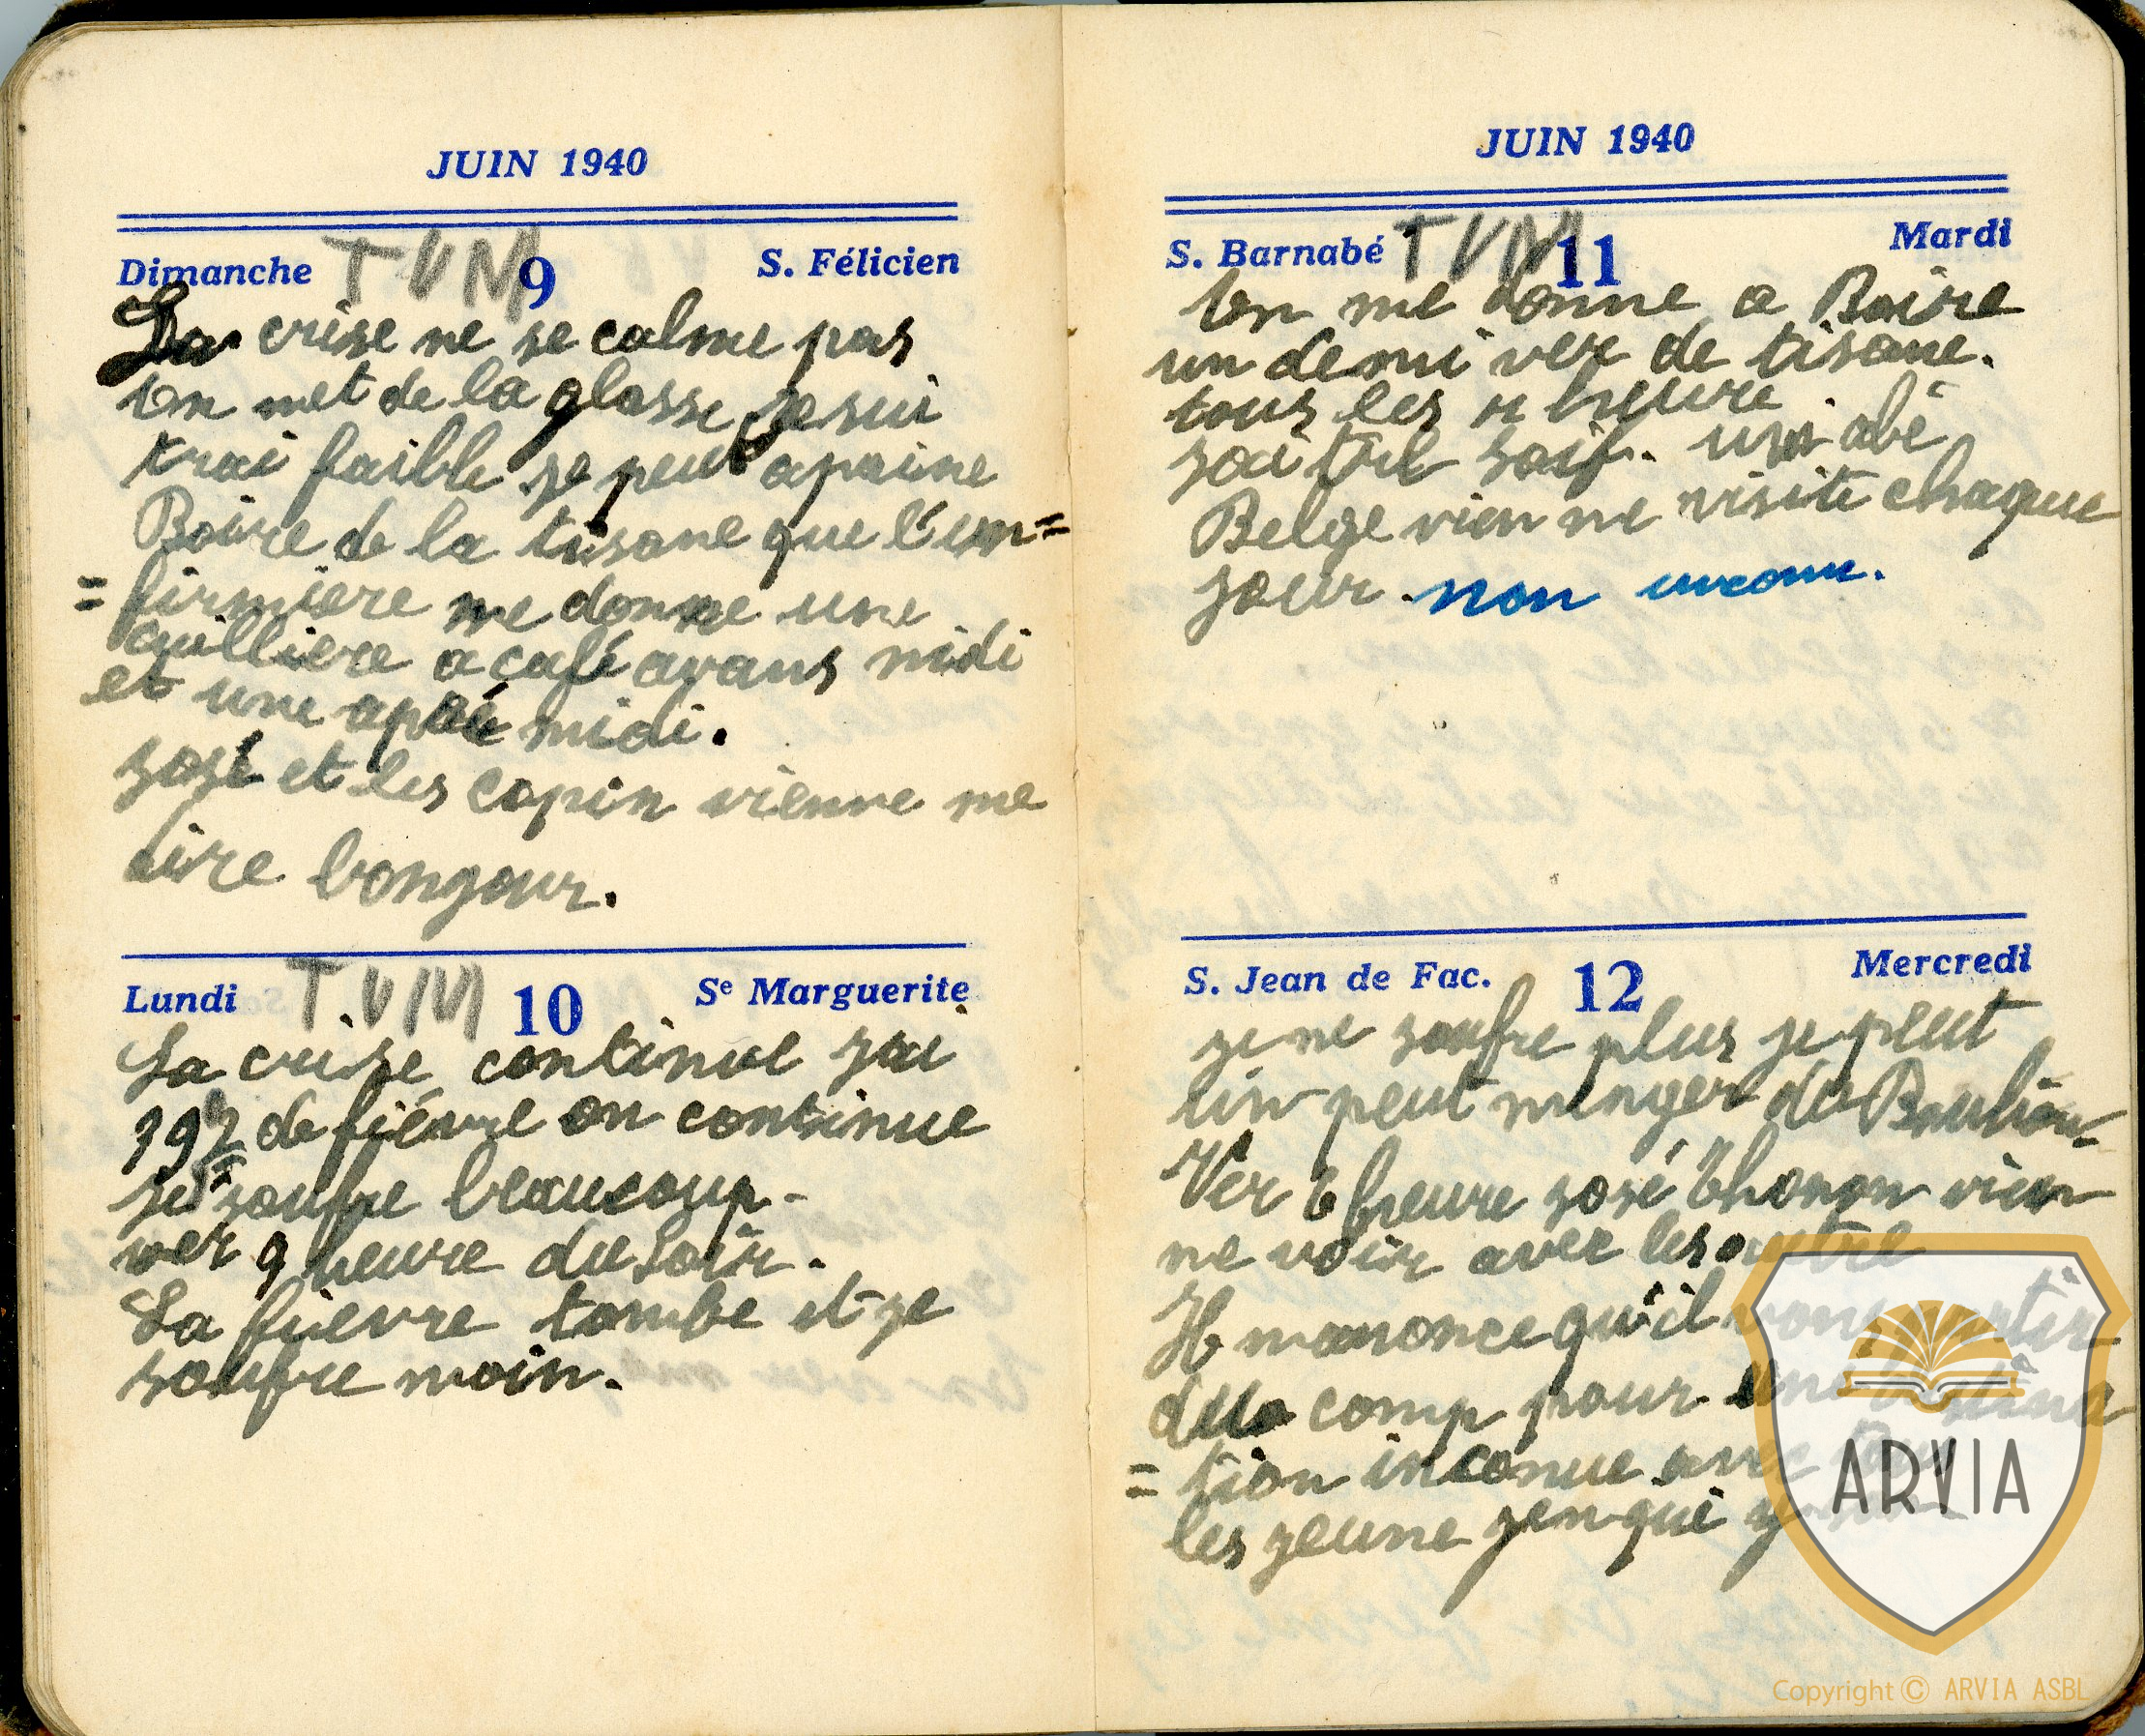 JUIN 1940
Dimanche TVM 9 S. Félicien
La crise ne se calme pas
On met de la glasse, je sui
trai faible je peut apaine
Boire de la tisane que l'em=
=firmière me donne une
quilliere a café avans midi
et une aprée midi.
José et les copin vienne me
dire bongour.
Lundi TVM 10 Se Marguerite
La crise continue jai
de fiévre on continue
je soufre beaucoup-
ver 9 heure du soir.
La fievre tombe et je
soufre moin.
JUIN 1940
S. Barnabé TVM 11 Mardi
On me donne a Boire
un demi ver de tisane.
tous les heure
jai soif. abé
Belge vien me visité chaque
jour. non inconu.
S. Jean de Fac. 12 Mercredi
je ne soufre plus je peut
un peut menger du Boulion
Ver 6 heure José Thonon vien
me voir avec les autre
Il manonce qu'il vons partir
du camp pour une destina
=tion inconue avec
les jeune jen qui y
ARVIA
Copyright © ARVIA ASBL